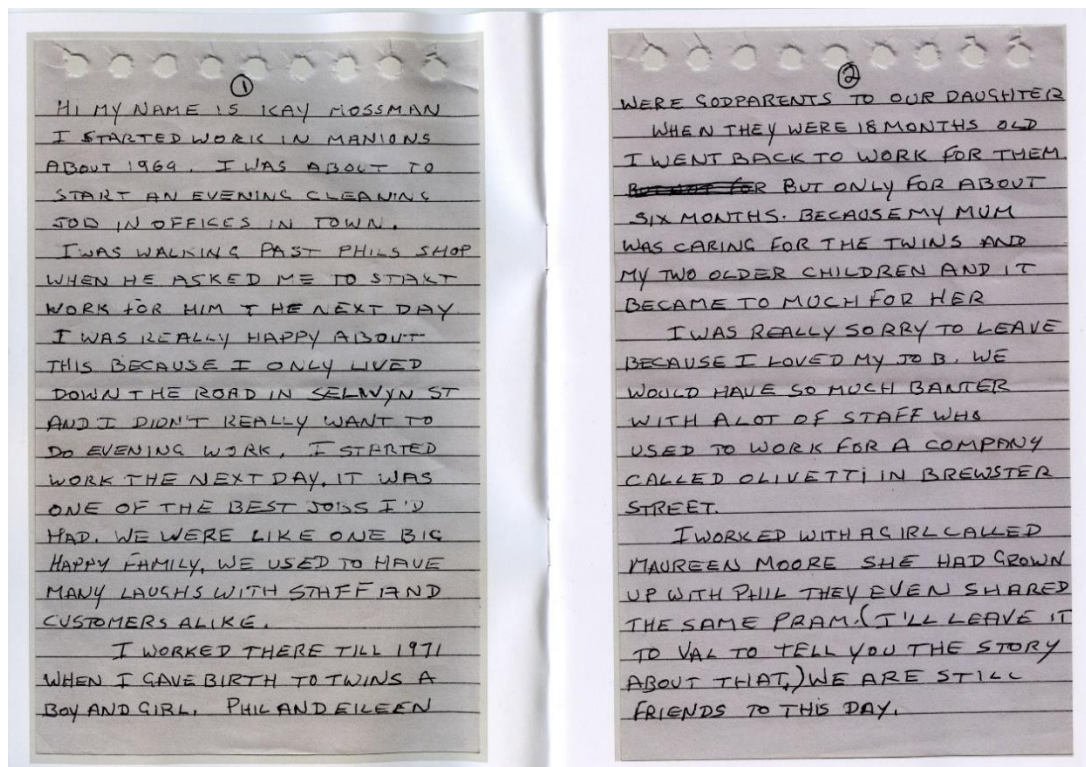 ①
HI MY NAME IS KAY MOSSMAN
I STARTED WORK IN MANIONS
ABOUT 1969. I WAS ABOUT TO
START AN EVENING CLEANING
JOB IN OFFICES IN TOWN.
I WAS WALKING PAST PHILS SHOP
WHEN HE ASKED ME TO START
WORK FOR HIM THE NEXT DAY
I WAS REALLY HAPPY ABOUT
THIS BECAUSE I ONLY LIVED
DOWN THE ROAD IN SELWYN ST
AND I DIDN'T REALLY WANT TO
DO EVENING WORK. I STARTED
WORK THE NEXT DAY. IT WAS
ONE OF THE BEST JOBS I'D
HAD. WE WERE LIKE ONE BIG
HAPPY FAMILY, WE USED TO HAVE
MANY LAUGHS WITH STAFF AND
CUSTOMERS ALIKE.
I WORKED THERE TILL 1971
WHEN I GAVE BIRTH TO TWINS A
BOY AND GIRL. PHIL AND EILEEN
②
WERE GODPARENTS TO OUR DAUGHTER
WHEN THEY WERE 18 MONTHS OLD
I WENT BACK TO WORK FOR THEM.
BUT ONLY FOR ABOUT
SIX MONTHS. BECAUSE MY MUM
WAS CARING FOR THE TWINS AND
MY TWO OLDER CHILDREN AND IT
BECAME TO MUCH FOR HER
I WAS REALLY SORRY TO LEAVE
BECAUSE I LOVED MY JOB. WE
WOULD HAVE SO MUCH BANTER
WITH A LOT OF STAFF WHO
USED TO WORK FOR A COMPANY
CALLED OLIVETTI IN BREWSTER
STREET.
I WORKED WITH A GIRL CALLED
MAUREEN MOORE SHE HAD GROWN
UP WITH PHIL THEY EVEN SHARED
THE SAME PRAM. (I'LL LEAVE IT
TO VAL TO TELL YOU THE STORY
ABOUT THAT.) WE ARE STILL
FRIENDS TO THIS DAY.